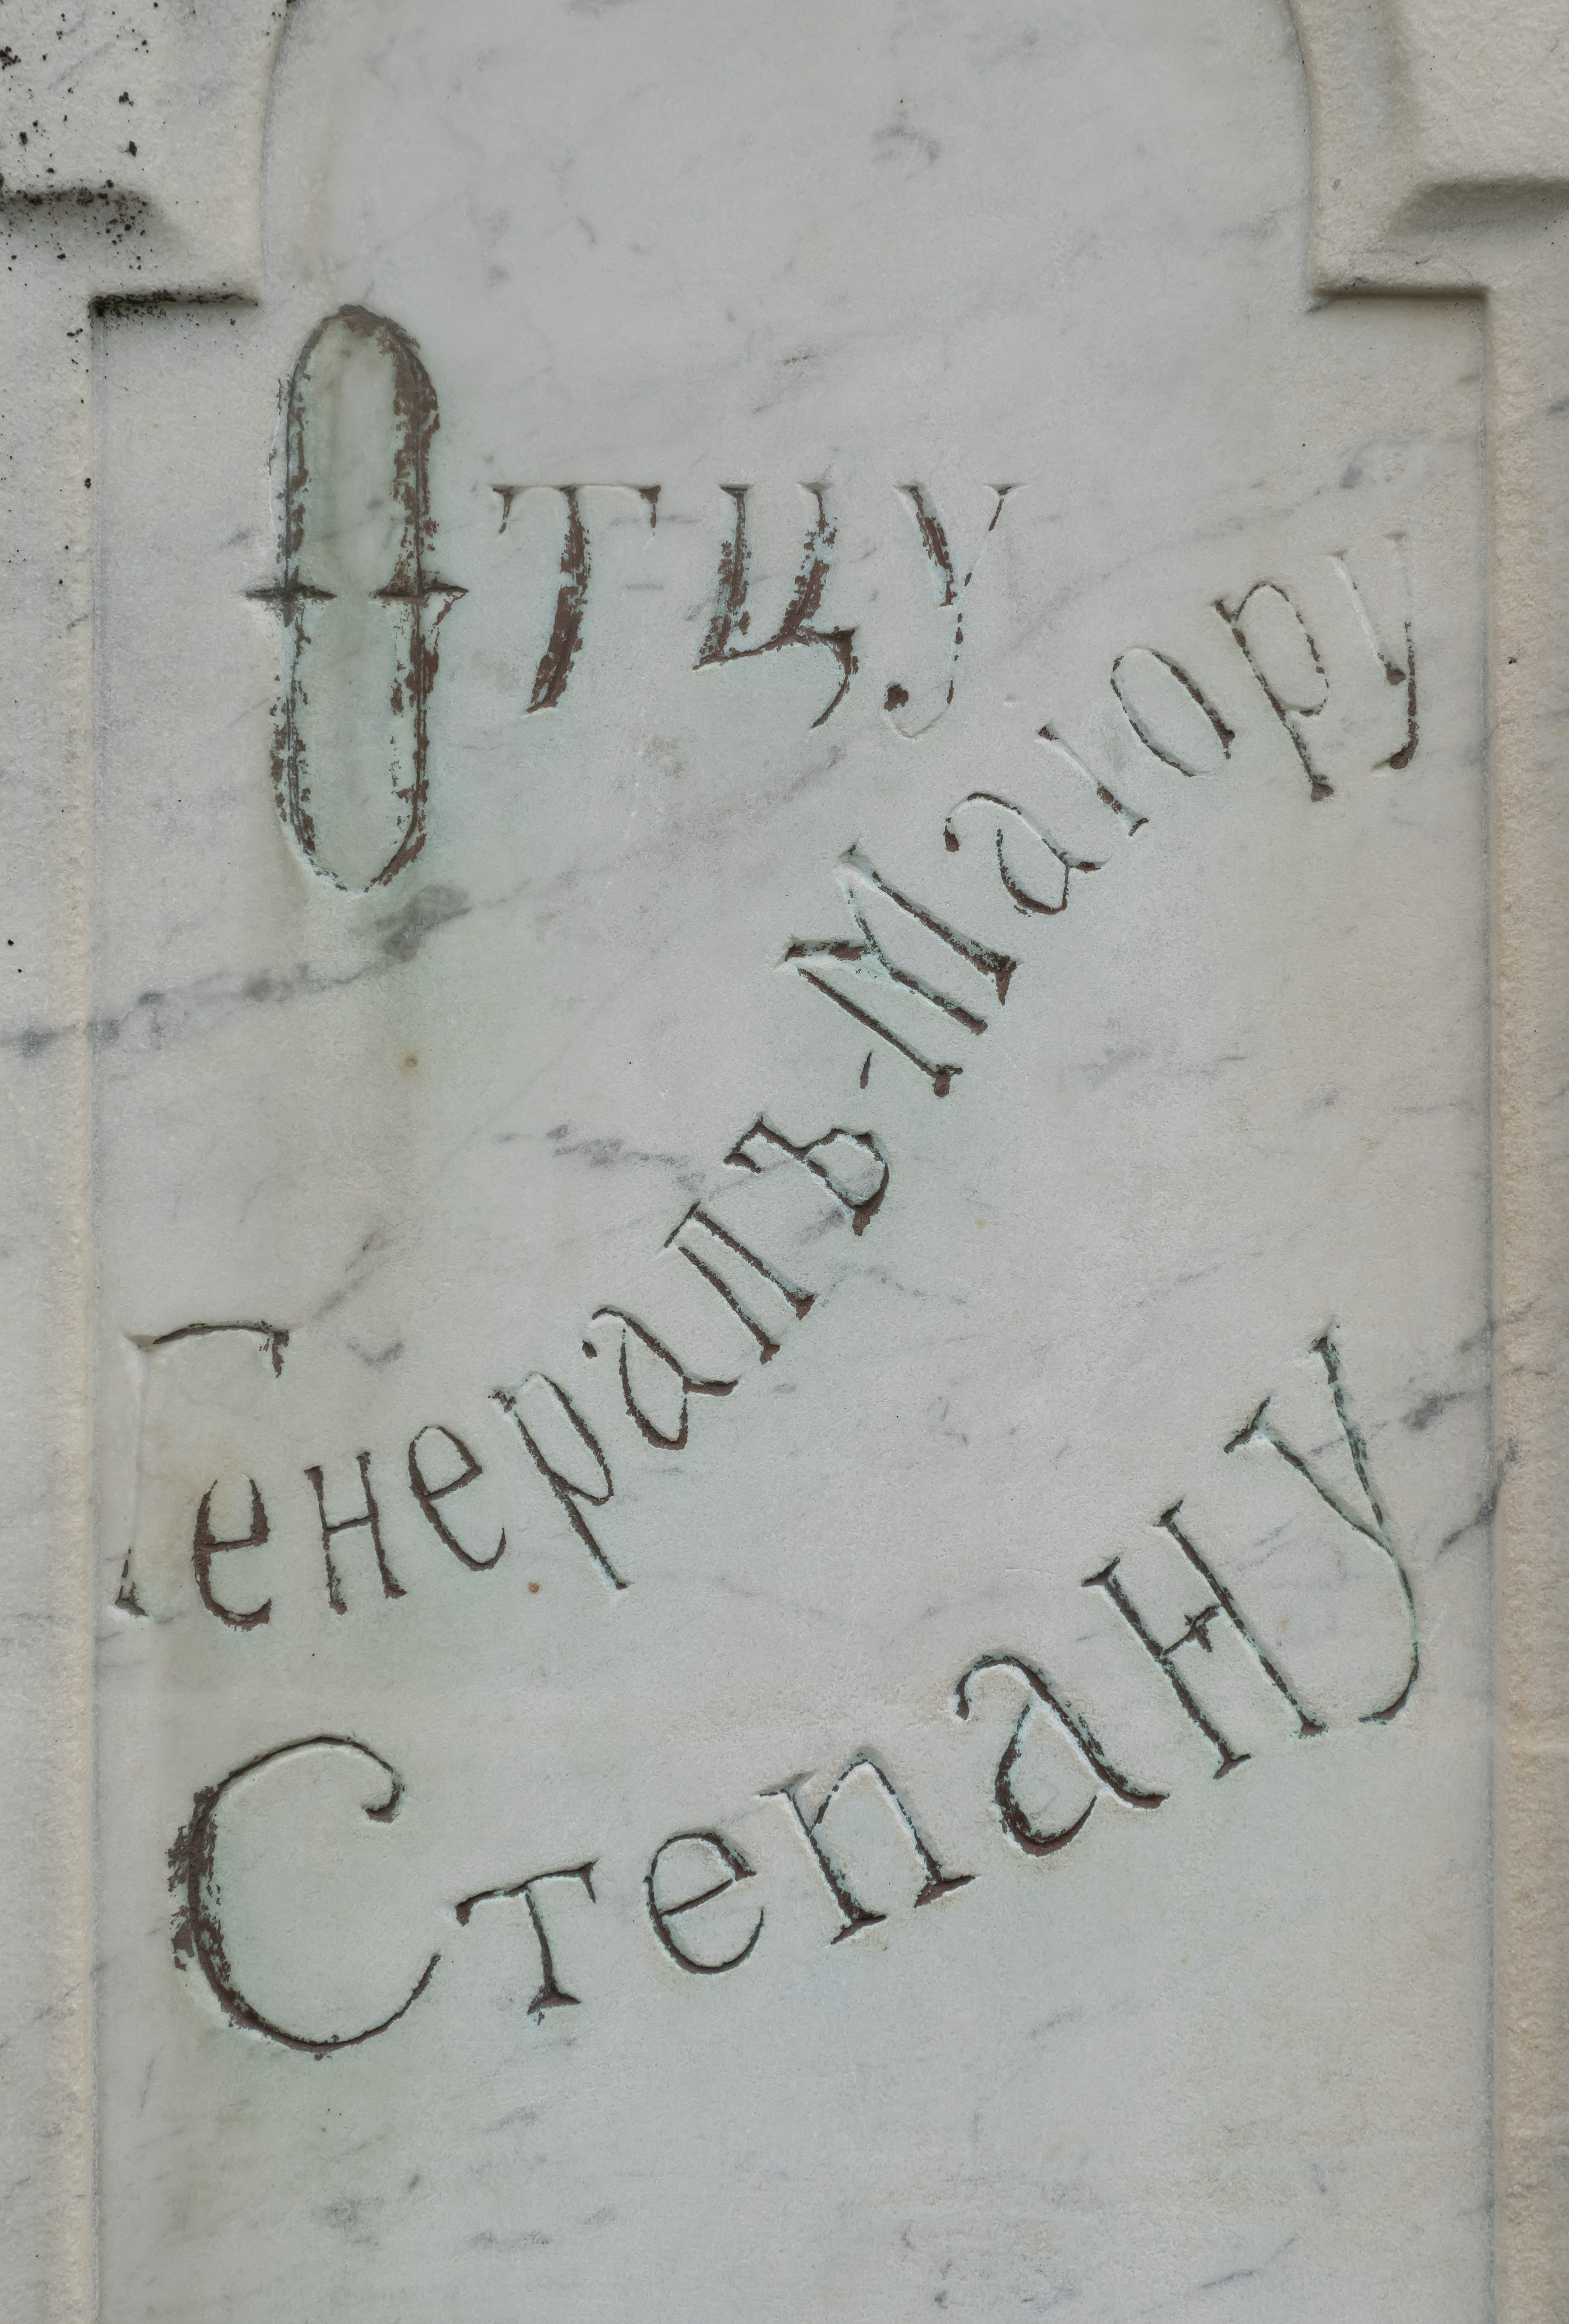 Отцу
Генералъ-Маіору
Степану